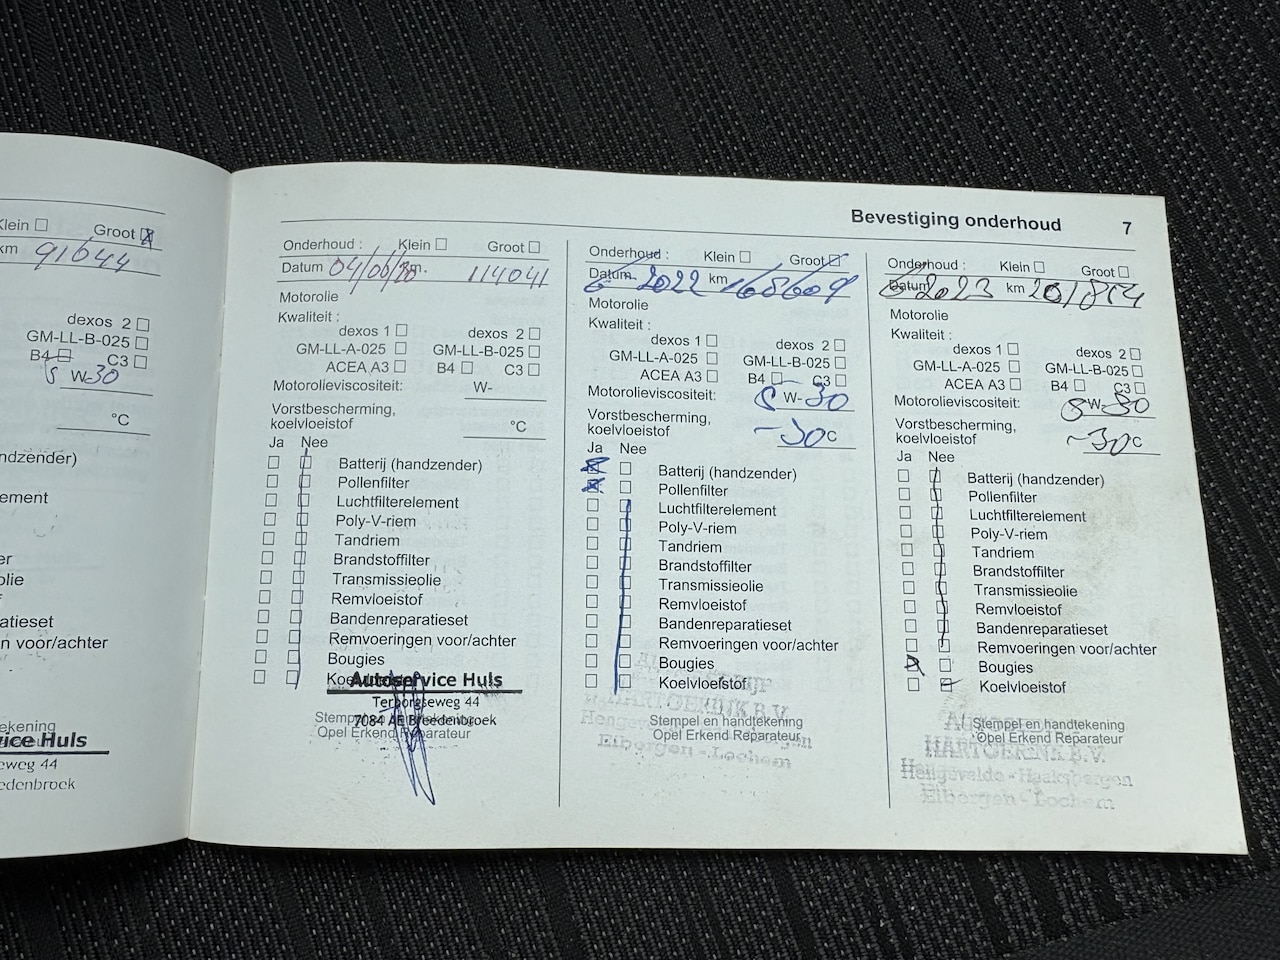 Klein Groot
km 91644
dexos 2
GM-LL-B-025
B4 C3
5 W-30
°C
ndzender)
ement
er
olie
f
atieset
n voor/achter
tekening
vice Huls
eweg 44
edenbroek
Bevestiging onderhoud 7
Onderhoud : Klein Groot
Datum 04/06/20 km. 114041
Motorolie
Kwaliteit :
dexos 1 dexos 2
GM-LL-A-025 GM-LL-B-025
ACEA A3 B4 C3
Motorolieviscositeit: W-
Vorstbescherming,
koelvloeistof °C
Ja Nee
Batterij (handzender)
Pollenfilter
Luchtfilterelement
Poly-V-riem
Tandriem
Brandstoffilter
Transmissieolie
Remvloeistof
Bandenreparatieset
Remvoeringen voor/achter
Bougies
Koelvloeistof
Autoservice Huls
Terborgseweg 44
7084 AE Breedenbroek
Stempel en handtekening
Opel Erkend Reparateur
Onderhoud : Klein Groot
Datum 6 2022 km 168609
Motorolie
Kwaliteit :
dexos 1 dexos 2
GM-LL-A-025 GM-LL-B-025
ACEA A3 B4 C3
Motorolieviscositeit: 5 W-30
Vorstbescherming,
koelvloeistof -30 °C
Ja Nee
Batterij (handzender)
Pollenfilter
Luchtfilterelement
Poly-V-riem
Tandriem
Brandstoffilter
Transmissieolie
Remvloeistof
Bandenreparatieset
Remvoeringen voor/achter
Bougies
Koelvloeistof
Stempel en handtekening
Opel Erkend Reparateur
HARTGERINK B.V.
Eibergen - Lochem
Onderhoud : Klein Groot
Datum 6 2023 km
Motorolie
Kwaliteit :
dexos 1 dexos 2
GM-LL-A-025 GM-LL-B-025
ACEA A3 B4 C3
Motorolieviscositeit: 5 W-30
Vorstbescherming,
koelvloeistof -30 °C
Ja Nee
Batterij (handzender)
Pollenfilter
Luchtfilterelement
Poly-V-riem
Tandriem
Brandstoffilter
Transmissieolie
Remvloeistof
Bandenreparatieset
Remvoeringen voor/achter
Bougies
Koelvloeistof
Stempel en handtekening
Opel Erkend Reparateur
HARTGERINK B.V.
Hengevelde - Haaksbergen
Eibergen - Lochem